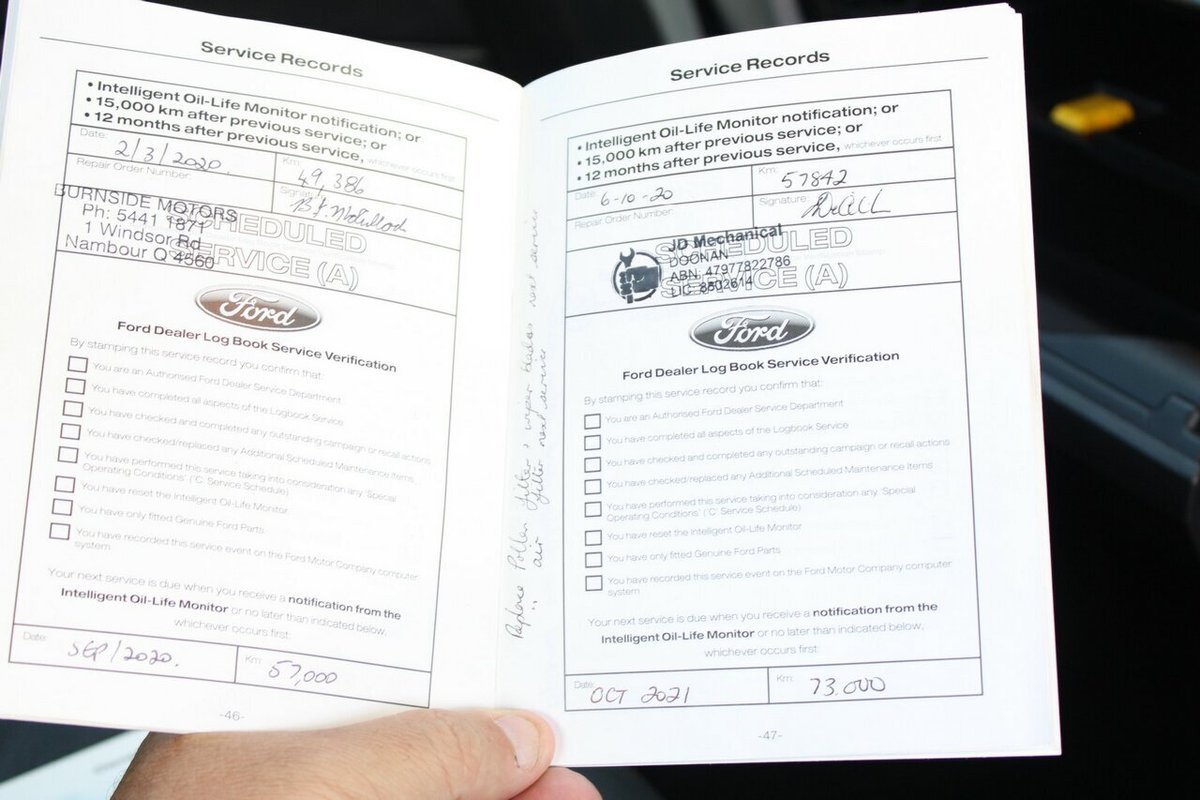 Service Records
• Intelligent Oil-Life Monitor notification; or
• 15,000 km after previous service; or
• 12 months after previous service, whichever occurs first
Date:
2/3/2020.
Km:
49,386
Repair Order Number:
Signature:
BURNSIDE MOTORS
Ph: 5441 1871
1 Windsor Rd
Nambour Q 4560
SCHEDULED
SERVICE (A)
Ford
Ford Dealer Log Book Service Verification
By stamping this service record you confirm that:
You are an Authorised Ford Dealer Service Department
You have completed all aspects of the Logbook Service
You have checked and completed any outstanding campaign or recall actions
You have checked/replaced any Additional Scheduled Maintenance Items
You have performed this service taking into consideration any 'Special
Operating Conditions' ('C' Service Schedule)
You have reset the Intelligent Oil-Life Monitor
You have only fitted Genuine Ford Parts
You have recorded this service event on the Ford Motor Company computer
system
Your next service is due when you receive a notification from the
Intelligent Oil-Life Monitor or no later than indicated below,
whichever occurs first:
Date:
SEP/2020.
Km:
57,000
-46-
Replace Pollen filter & wiper blades next service
" air filter next service
Service Records
• Intelligent Oil-Life Monitor notification; or
• 15,000 km after previous service; or
• 12 months after previous service, whichever occurs first
Date:
6-10-20
Km:
57842
Repair Order Number:
Signature:
JD Mechanical
DOONAN
ABN: 47977822786
LIC: 8502614
SCHEDULED
SERVICE (A)
Ford
Ford Dealer Log Book Service Verification
By stamping this service record you confirm that:
You are an Authorised Ford Dealer Service Department
You have completed all aspects of the Logbook Service
You have checked and completed any outstanding campaign or recall actions
You have checked/replaced any Additional Scheduled Maintenance Items
You have performed this service taking into consideration any 'Special
Operating Conditions' ('C' Service Schedule)
You have reset the Intelligent Oil-Life Monitor
You have only fitted Genuine Ford Parts
You have recorded this service event on the Ford Motor Company computer
system
Your next service is due when you receive a notification from the
Intelligent Oil-Life Monitor or no later than indicated below,
whichever occurs first:
Date:
OCT 2021
Km:
73.000
-47-